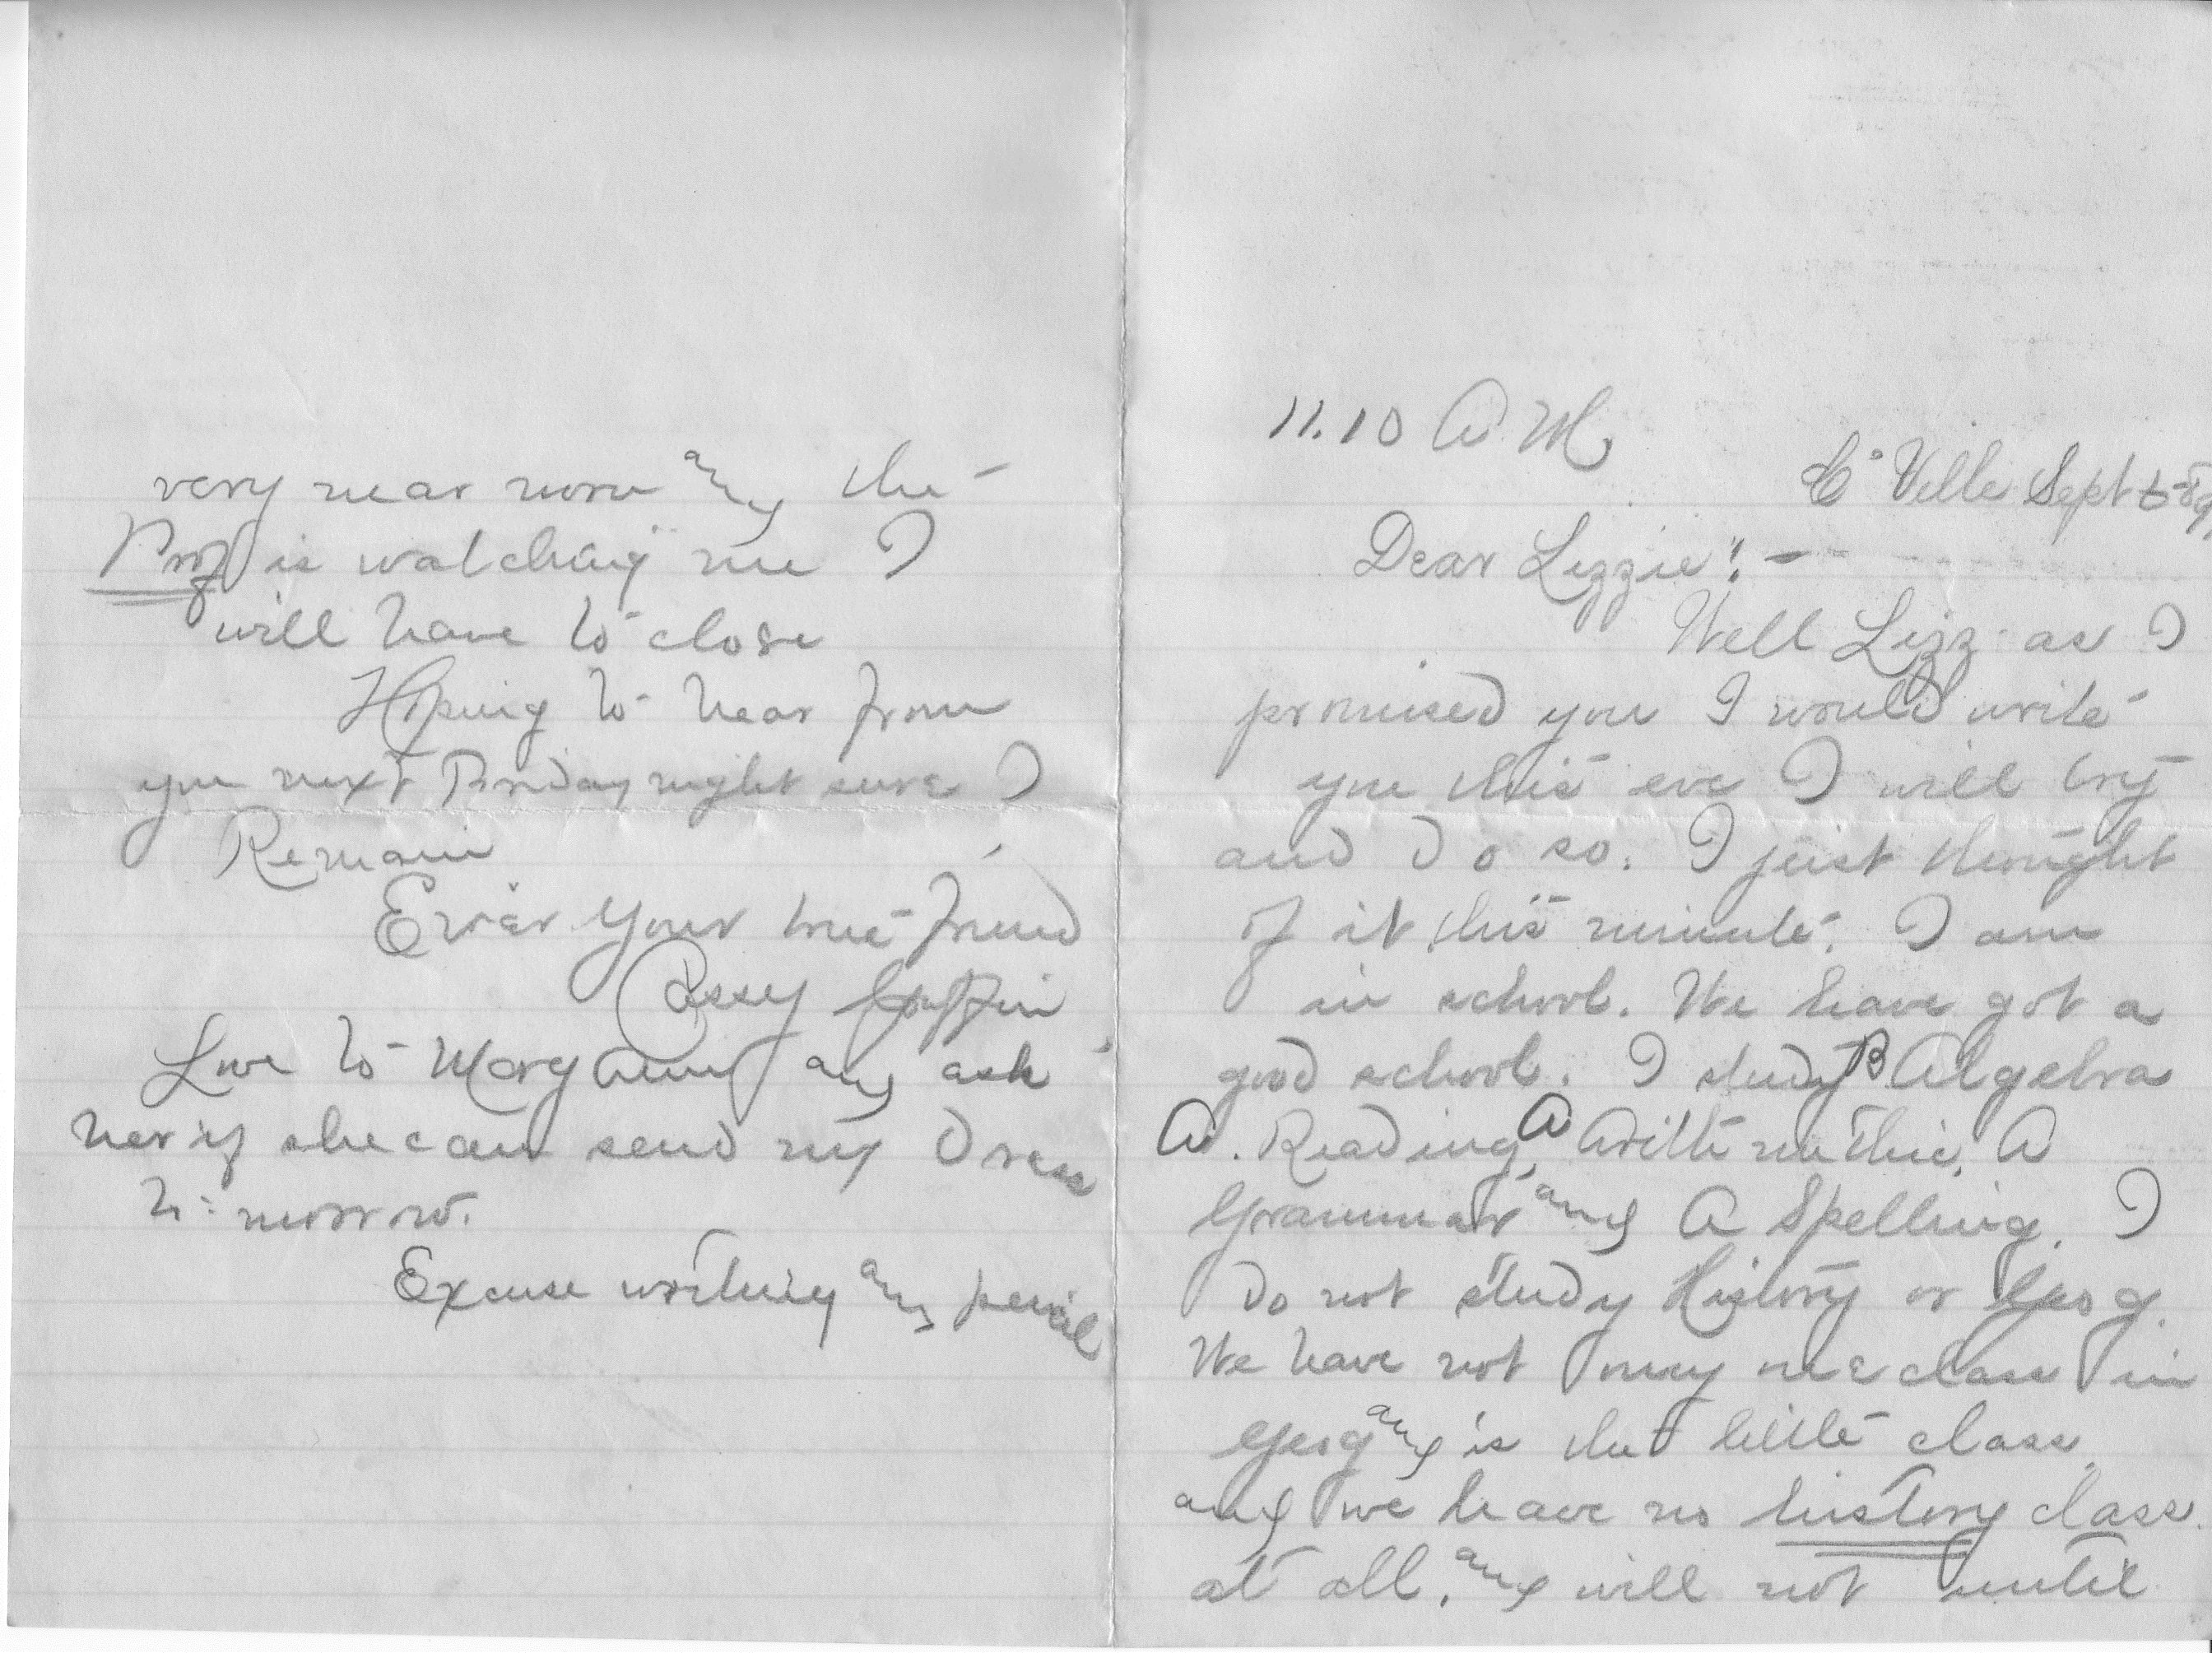 11.10 A M
C° Ville Sept 6-89
Dear Lizzie":-
Well Lizz as I
promised you I would write
you this eve I will try
and do so. I just thought
of it this minute. I am
in school. We have got a
good school. I study B Algebra
A. Reading, A Arithmethic, A
Grammar and A Spelling. I
do not study History or Geog.
We have not only one class in
Geog and is the little class
and we have no history class.
at all, and will not until
very near noon and the
Prof is watching me I
will have to close
Hoping to hear from
you next Friday night sure I
Remain
Ever your true friend
Cassy Griffin
Love to Mary Ann and ask
her if she can send my dress
to-morrow.
Excuse writing and pencil